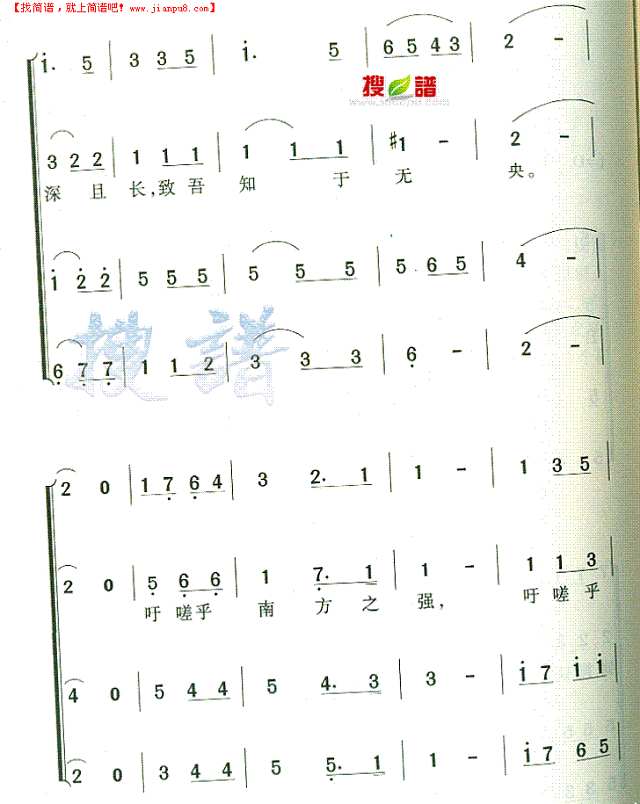 【找简谱，就上简谱吧！www.jianpu8.com】
i. 5 | 3 3 5 | i. 5 | 6 5 4 3 | 2 – |
搜 譜
3 2 2 | 1 1 1 | 1 1 1 | #1 – | 2 – |
深 且 长，致 吾 知 于 无 央。
i 2 2 | 5 5 5 | 5 5 5 | 5 6 5 | 4 – |
6 7 7 | 1 1 2 | 3 3 3 | 6 – | 2 – |
搜譜
2 0 | 1 7 6 4 | 3 2. 1 | 1 – | 1 3 5
2 0 | 5 6 6 | 1 7. 1 | 1 – | 1 1 3
吁 嗟乎 南 方 之 强， 吁 嗟 乎
4 0 | 5 4 4 | 5 4. 3 | 3 – | i 7 i i
2 0 | 3 4 4 | 5 5. 1 | 1 – | i 7 6 5